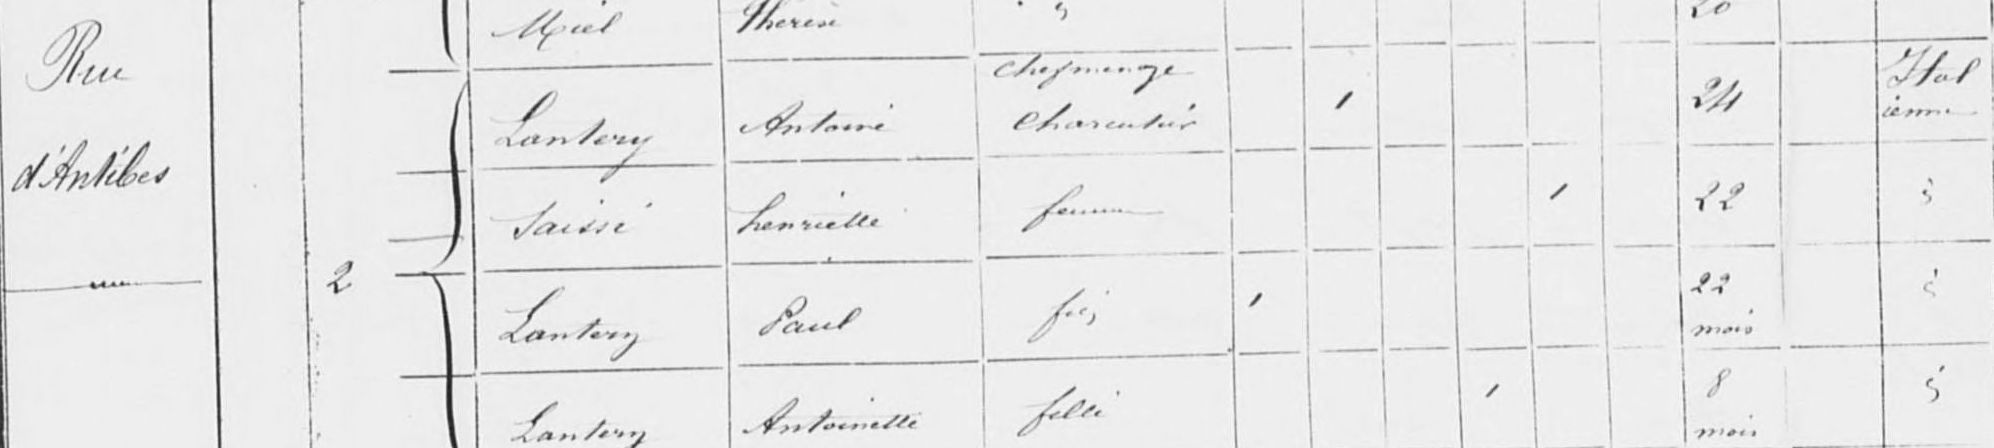 Miel Thérèse " 20
Rue
d'Antibes
2
Lantery Antoine chef menage charcutier 1 24 Italienne
Saissi henriette femme 1 22 "
Lantery Paul fils 1 22 mois "
Lantery Antoinette fille 1 8 mois "